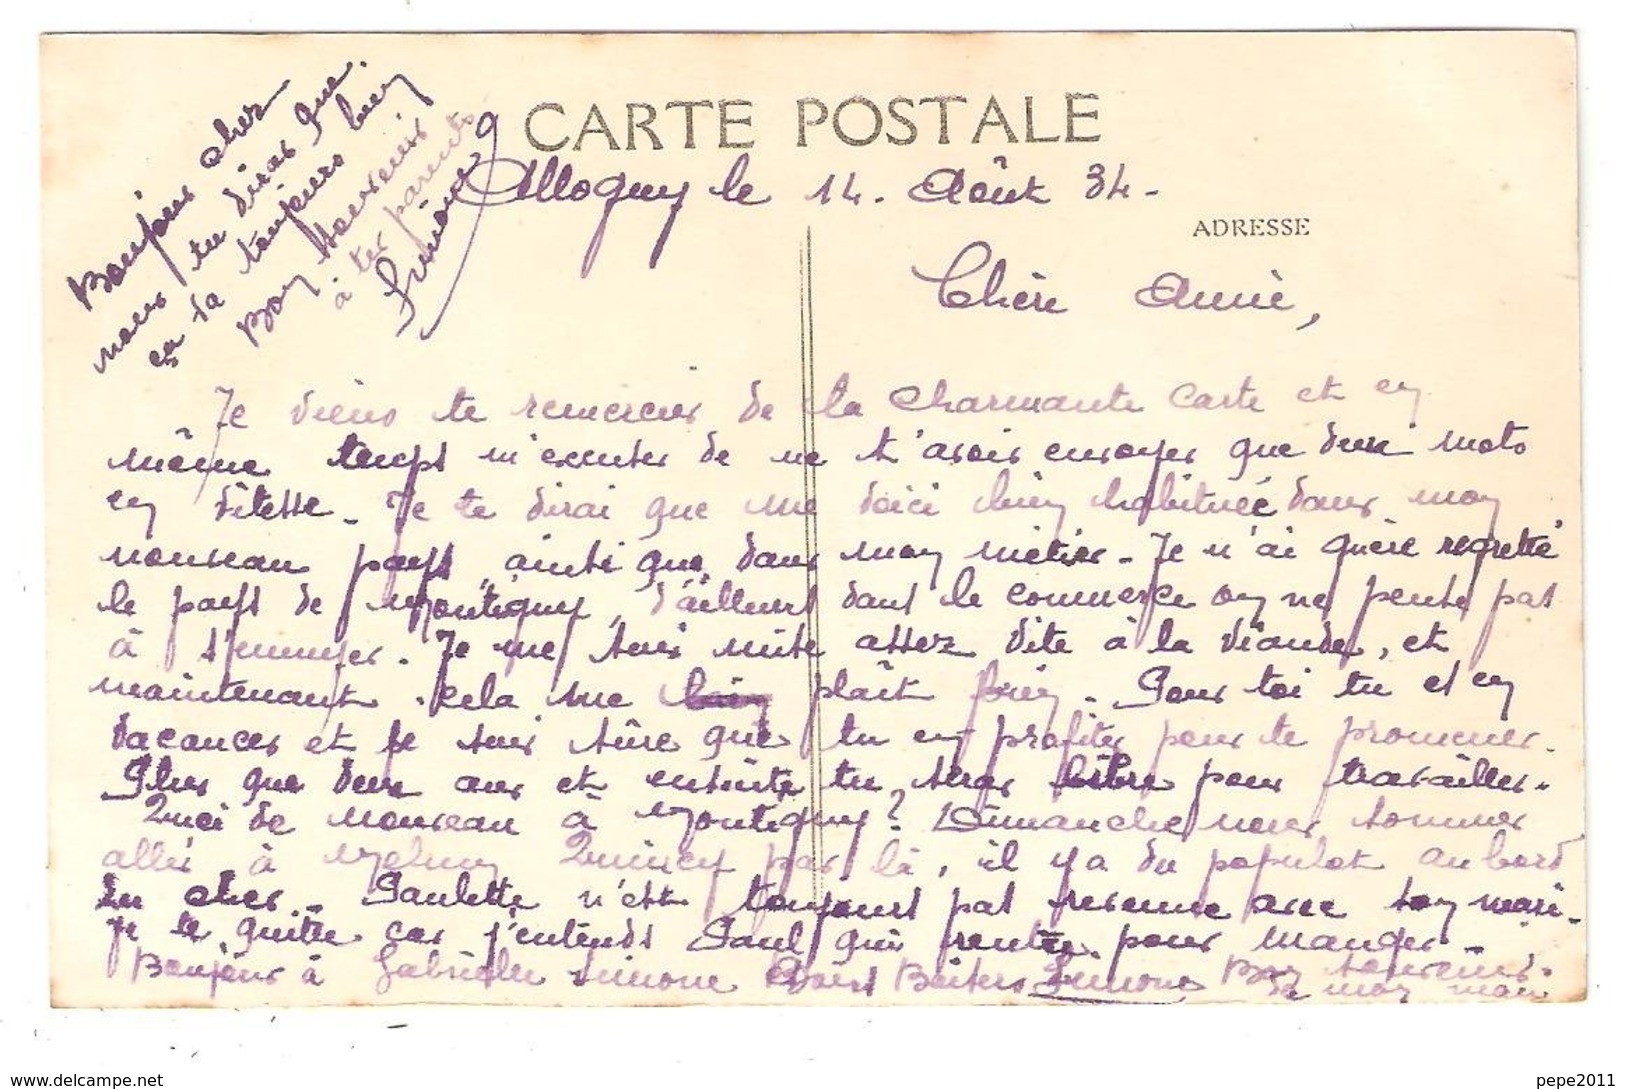 CARTE POSTALE
Allogny le 14. Août 34-
ADRESSE
Bonjour chez
nous tu diras que
ça va toujours bien
Bon souvenir
à tes parents
Simone
Chère Amie,
Je viens te remercier de la charmante carte et en
même temps m'excuser de ne t'avoir envoyer que deux mots
en vitesse. Je te dirai que me voici bien habituée dans mon
nouveau pays, ainsi que dans mon métier. Je n'ai guère regretté
le pays de Montigny, d'ailleurs dans le commerce on ne pense pas
à s'ennuyer. Je me suis mise assez vite à la viande, et
maintenant cela me plaît bien. Pour toi tu es en
vacances et je suis sûre que tu en profites pour te promener.
Plus que deux ans et ensuite tu seras libre pour travailler.
Quoi de nouveau à Montigny? Dimanche nous sommes
allés à Mehun Quincy par là, il y a du populot au bord
du cher. Paulette n'est toujours pas revenue avec son mari.
Je te quitte car j'entends Paul qui rentre pour manger.
Bonjour à Gabrielle Simone Bons Baisers Simone Bon souvenir
de mon mari
pepe2011
www.delcampe.net